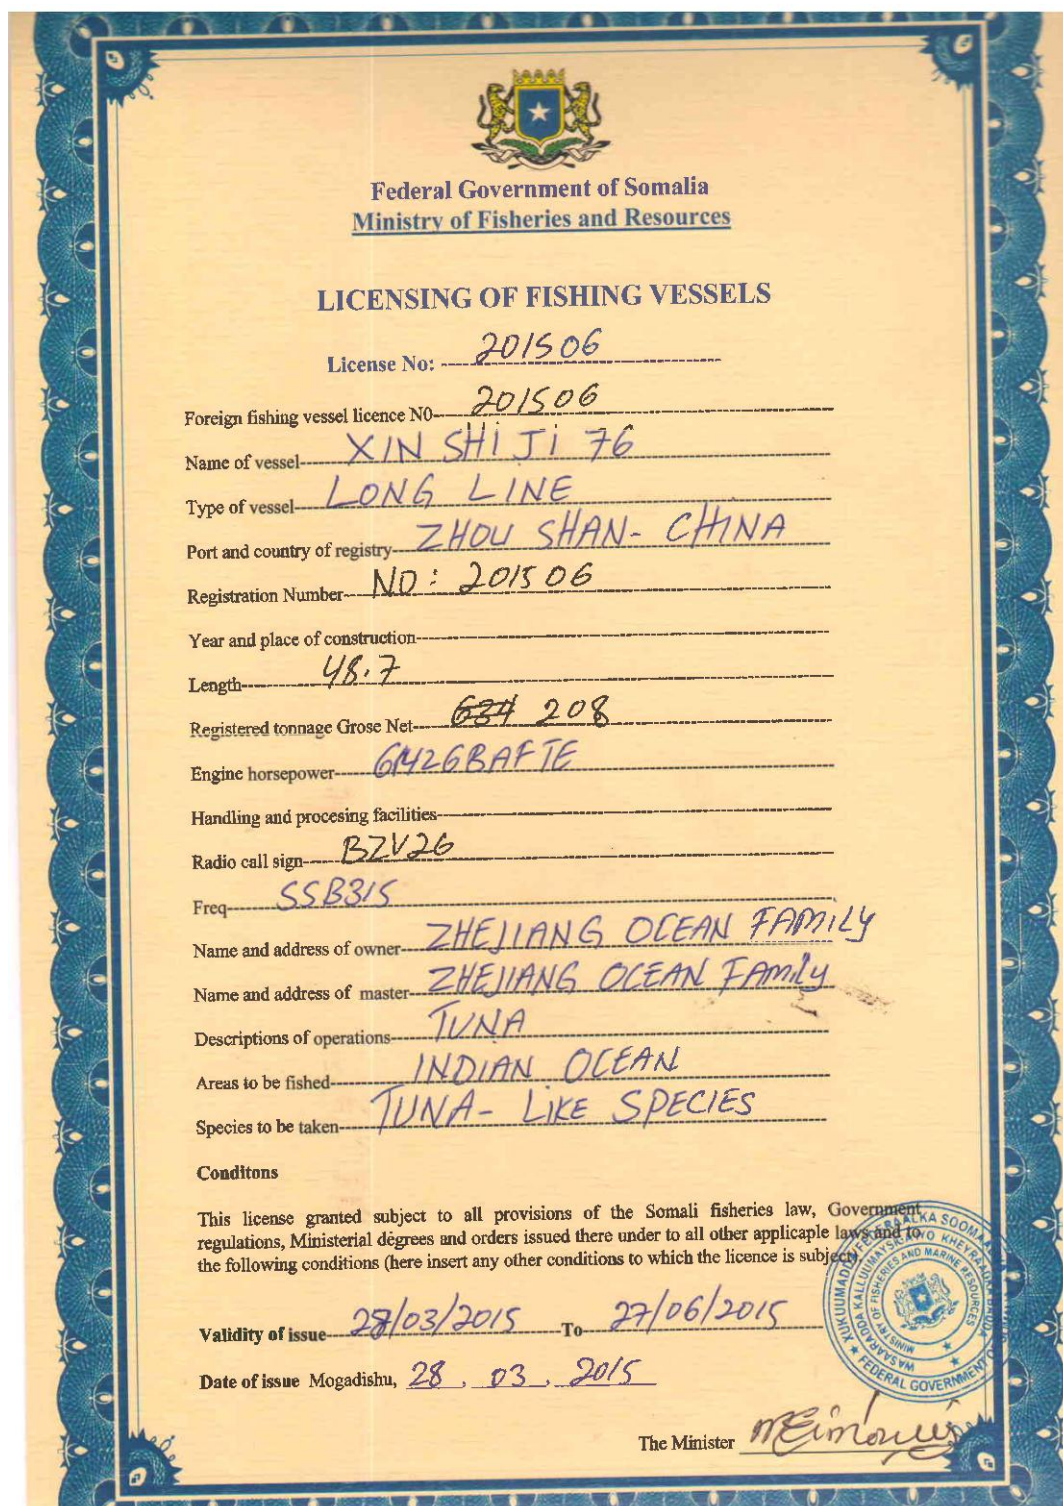 Federal Government of Somalia
Ministry of Fisheries and Resources
LICENSING OF FISHING VESSELS
License No: 201506
Foreign fishing vessel licence N0 201506
Name of vessel XIN SHI JI 76
Type of vessel LONG LINE
Port and country of registry ZHOU SHAN- CHINA
Registration Number NO: 201506
Year and place of construction
Length 48.7
Registered tonnage Grose Net 634 208
Engine horsepower 6M26BAFTE
Handling and procesing facilities
Radio call sign BZV26
Freq SSB315
Name and address of owner ZHEJIANG OCEAN FAMILY
Name and address of master ZHEJIANG OCEAN FAMILY
Descriptions of operations TUNA
Areas to be fished INDIAN OCEAN
Species to be taken TUNA- LIKE SPECIES
Conditons
This license granted subject to all provisions of the Somali fisheries law, Government
regulations, Ministerial degrees and orders issued there under to all other applicaple laws and to
the following conditions (here insert any other conditions to which the licence is subject).
Validity of issue 28/03/2015 To 27/06/2015
Date of issue Mogadishu, 28 . 03 . 2015
The Minister
MINISTRY OF FISHERIES AND MARINE RESOURCES